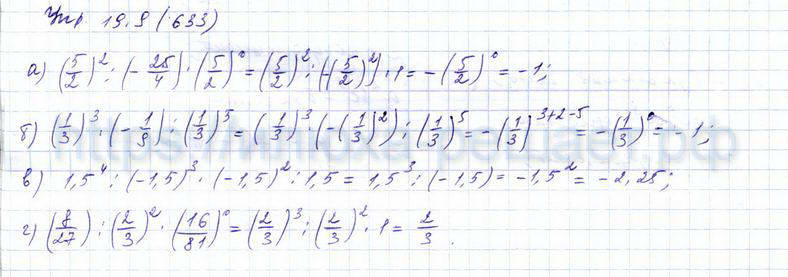 Упр. 19.9 (633)
а) (5/2)² : (-25/4) · (5/2)⁰ = (5/2)² : (-(5/2)²) · 1 = -(5/2)⁰ = -1;
б) (1/3)³ · (-1/9) : (1/3)⁵ = (1/3)³ · (-(1/3)²) : (1/3)⁵ = -(1/3)³⁺²⁻⁵ = -(1/3)⁰ = -1;
в) 1,5⁴ : (-1,5)³ · (-1,5)² : 1,5 = 1,5³ : (-1,5) = -1,5² = -2,25;
г) (8/27) : (2/3)² · (16/81)⁰ = (2/3)³ : (2/3)² · 1 = 2/3.